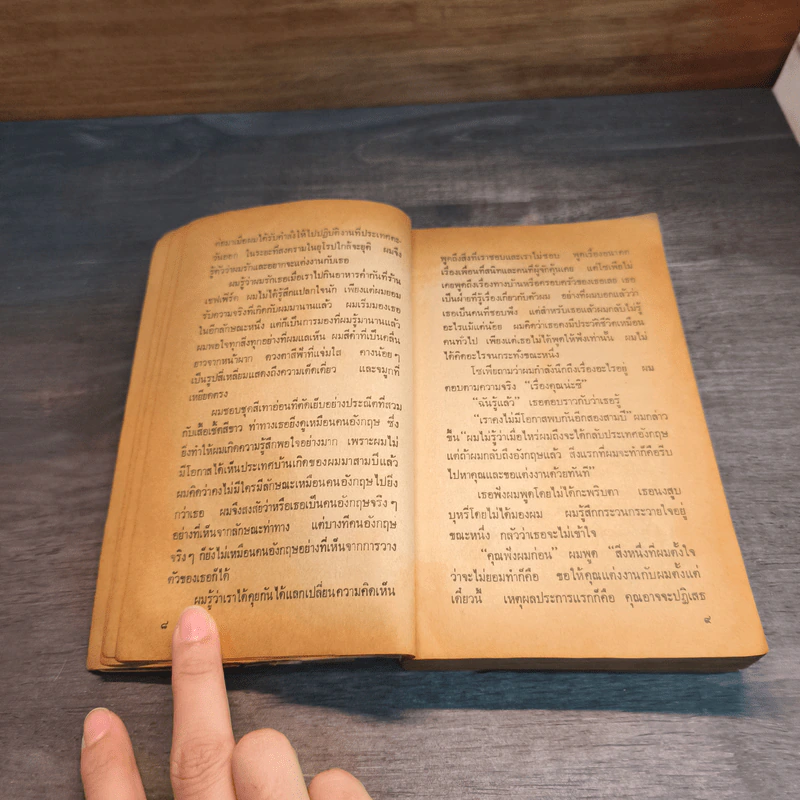 ต่อมาเมื่อผมได้รับคำสั่งให้ไปปฏิบัติงานที่ประเทศตะ-
วันออก ในระยะที่สงครามในยุโรปใกล้จะยุติ ผมจึง
รู้ตัวว่าผมรักและอยากจะแต่งงานกับเธอ
ผมรู้ว่าผมรักเธอเมื่อเราไปกินอาหารค่ำกันที่ร้าน
เชฟเฟิร์ด ผมไม่ได้รู้สึกแปลกใจนัก เพียงแต่ผมยอม
รับความจริงที่เกิดกับผมมานานแล้ว ผมเริ่มมองเธอ
ในอีกลักษณะหนึ่ง แต่ก็เป็นการมองที่ผมรู้มานานแล้ว
ผมพอใจทุกสิ่งทุกอย่างที่ผมแลเห็น ผมสีดำที่เป็นคลื่น
ยาวจากหน้าผาก ดวงตาสีฟ้าที่แจ่มใส คางน้อยๆ
เป็นรูปสี่เหลี่ยมแสดงถึงความเด็ดเดี่ยว และจมูกที่
เหยียดตรง
ผมชอบชุดสีเทาอ่อนที่ตัดเย็บอย่างประณีตที่สวม
กับเสื้อเชิ้ตสีขาว ท่าทางเธอยิ่งดูเหมือนคนอังกฤษ ซึ่ง
ยิ่งทำให้ผมเกิดความรู้สึกพอใจอย่างมาก เพราะผมไม่
มีโอกาสได้เห็นประเทศบ้านเกิดของผมมาสามปีแล้ว
ผมคิดว่าคงไม่มีใครมีลักษณะเหมือนคนอังกฤษไปยิ่ง
กว่าเธอ ผมจึงสงสัยว่าหรือเธอเป็นคนอังกฤษจริงๆ
อย่างที่เห็นจากลักษณะท่าทาง แต่บางทีคนอังกฤษ
จริงๆ ก็ยังไม่เหมือนคนอังกฤษอย่างที่เห็นจากการวาง
ตัวของเธอก็ได้
ผมรู้ว่าเราได้คุยกันได้แลกเปลี่ยนความคิดเห็น
๘
พูดถึงสิ่งที่เราชอบและเราไม่ชอบ พูดเรื่องอนาคต
เรื่องเพื่อนที่สนิทและคนที่ผู้จักคุ้นเคย แต่โซเฟียไม่
เคยพูดถึงเรื่องทางบ้านหรือครอบครัวของเธอเลย เธอ
เป็นฝ่ายที่รู้เรื่องเกี่ยวกับตัวผม อย่างที่ผมบอกแล้วว่า
เธอเป็นคนที่ชอบฟัง แต่สำหรับเธอแล้วผมกลับไม่รู้
อะไรแม้แต่น้อย ผมคิดว่าเธอคงมีประวัติชีวิตเหมือน
คนทั่วไป เพียงแต่เธอไม่ได้พูดให้ฟังเท่านั้น ผมไม่
ได้คิดอะไรจนกระทั่งขณะหนึ่ง
โซเฟียถามว่าผมกำลังนึกถึงเรื่องอะไรอยู่ ผม
ตอบตามความจริง “เรื่องคุณน่ะซิ”
“ฉันรู้แล้ว” เธอตอบราวกับว่าเธอรู้
“เราคงไม่มีโอกาสพบกันอีกสองสามปี” ผมกล่าว
ขึ้น “ผมไม่รู้ว่าเมื่อไหร่ผมถึงจะได้กลับประเทศอังกฤษ
แต่ถ้าผมกลับถึงอังกฤษแล้ว สิ่งแรกที่ผมจะทำก็คือรีบ
ไปหาคุณและขอแต่งงานด้วยทันที”
เธอฟังผมพูดโดยไม่ได้กะพริบตา เธอนั่งสูบ
บุหรี่โดยไม่ได้มองผม ผมรู้สึกกระวนกระวายใจอยู่
ขณะหนึ่ง กลัวว่าเธอจะไม่เข้าใจ
“คุณฟังผมก่อน” ผมพูด “สิ่งหนึ่งที่ผมตั้งใจ
ว่าจะไม่ยอมทำก็คือ ขอให้คุณแต่งงานกับผมตั้งแต่
เดี๋ยวนี้ เหตุผลประการแรกก็คือ คุณอาจจะปฏิเสธ
๙